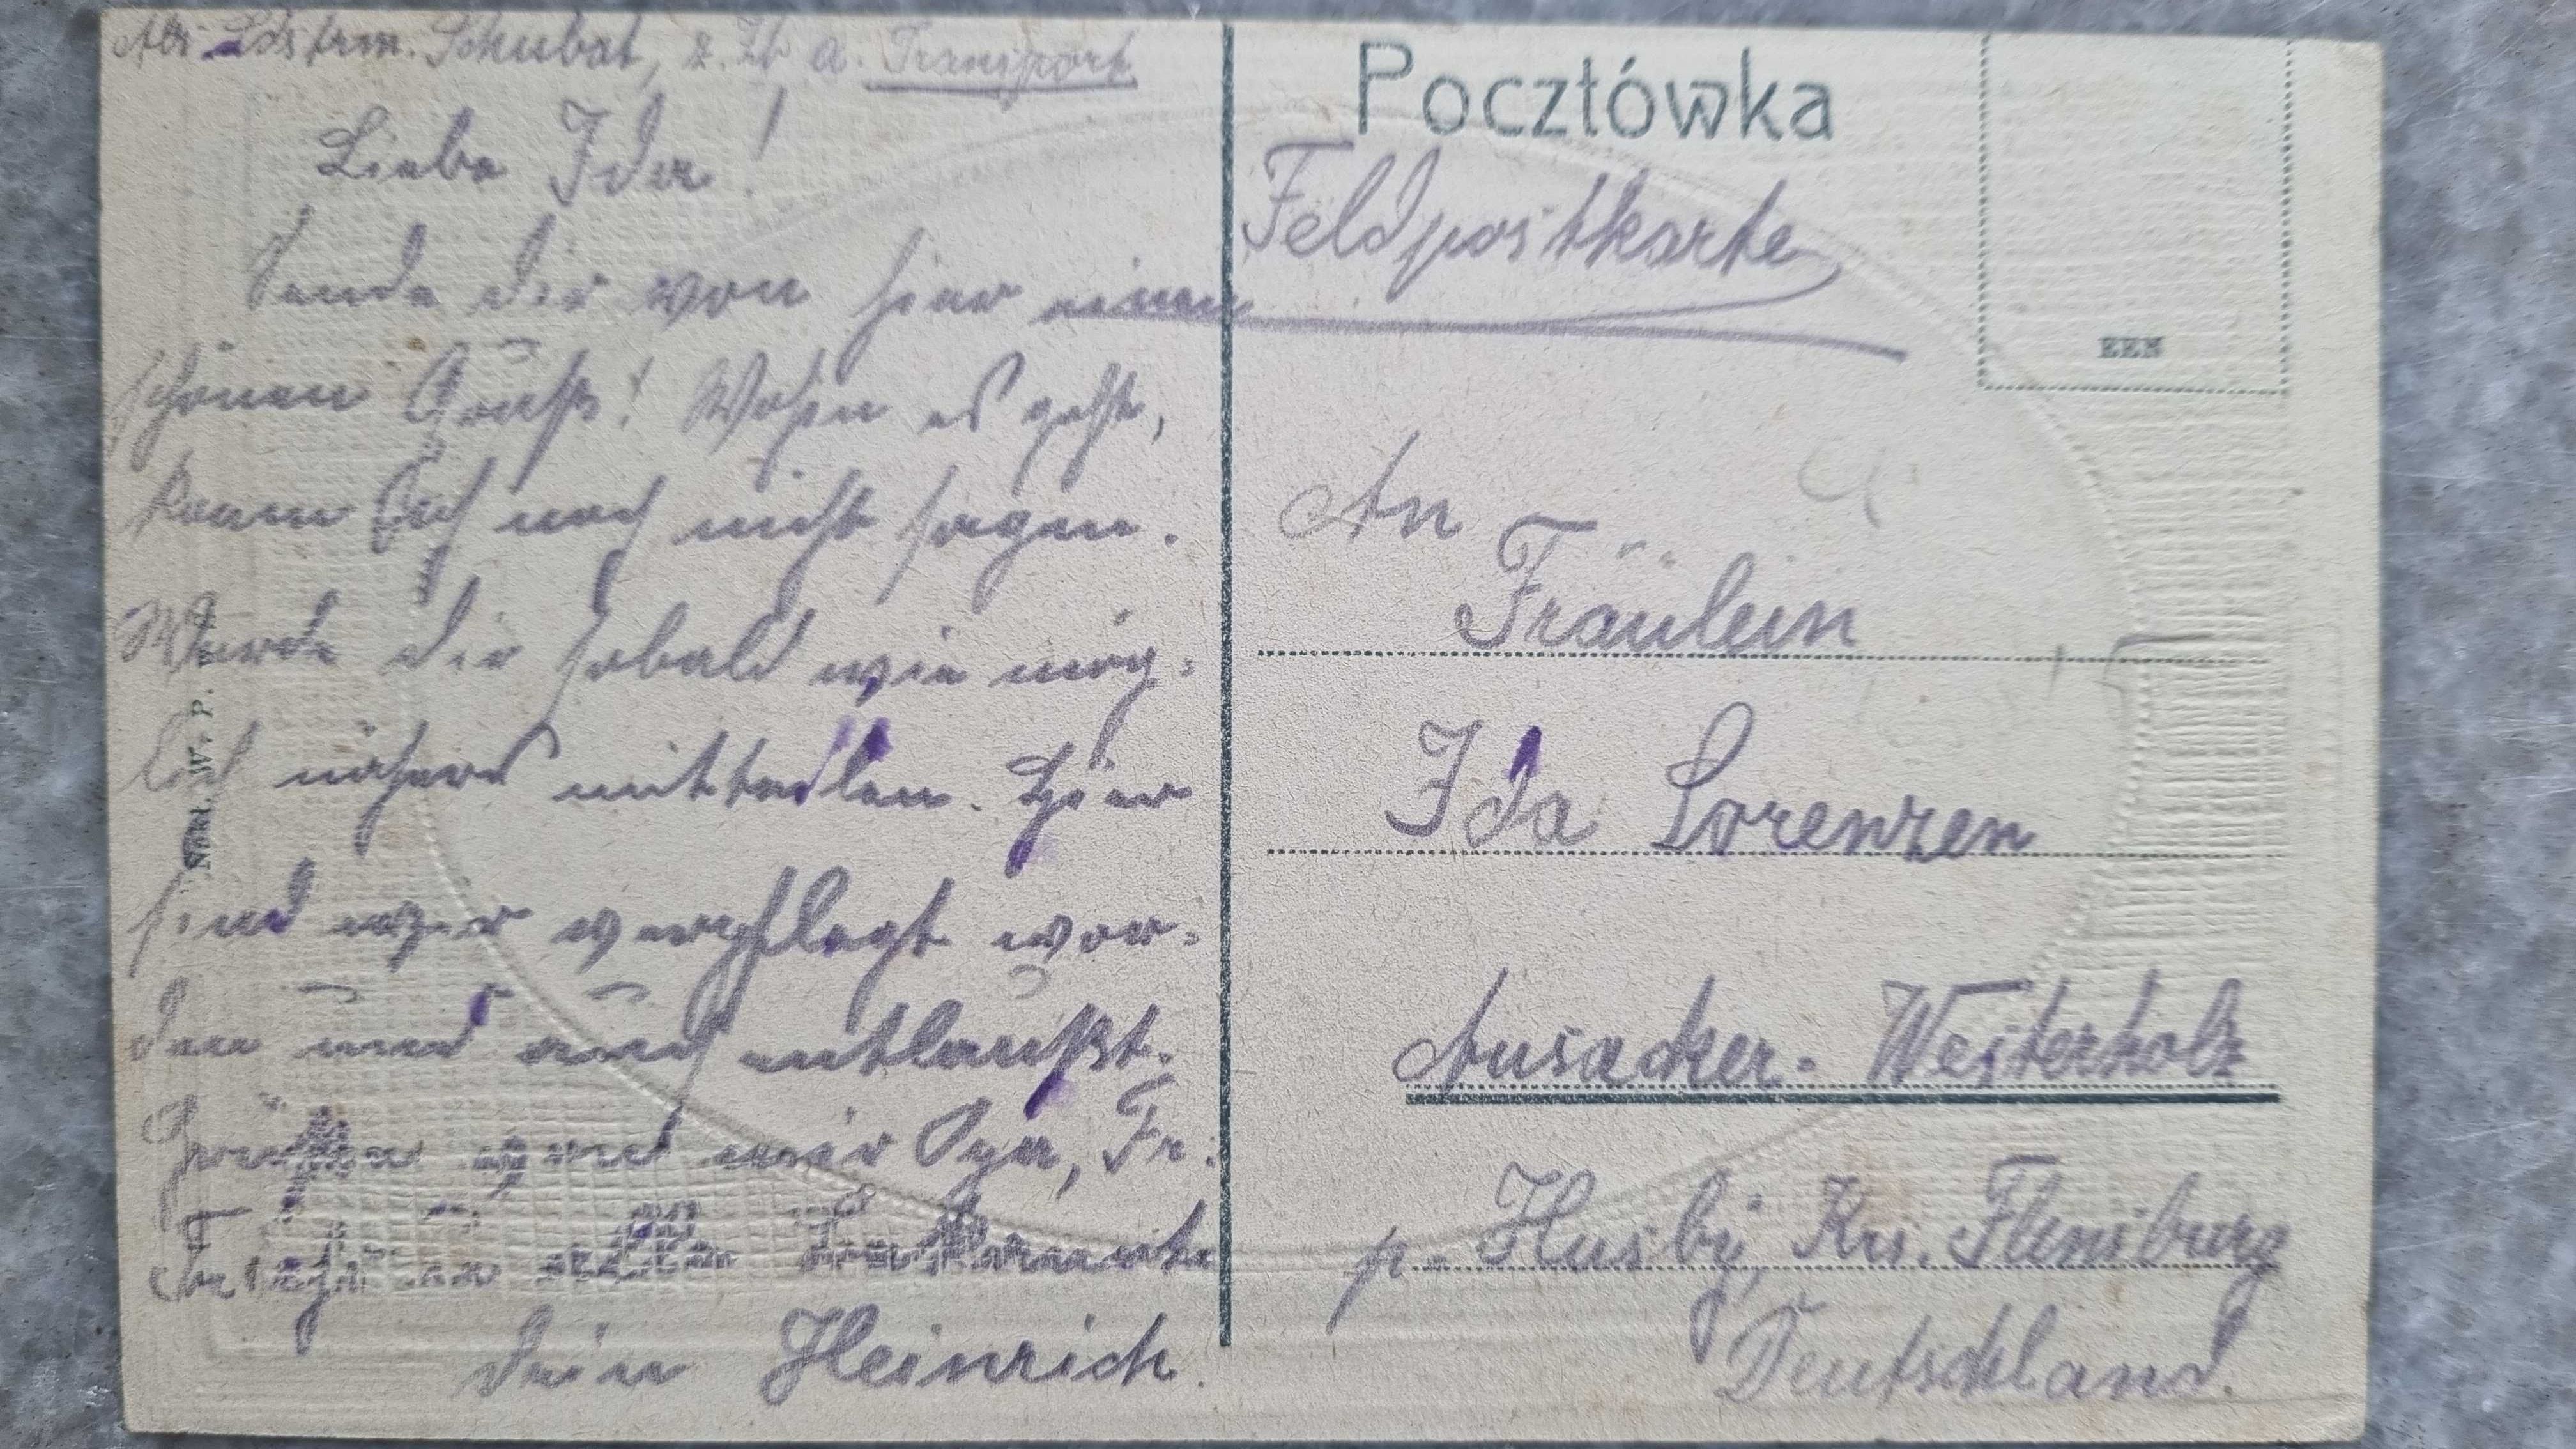 Abs. Ldstrm. Schubat, z. Zt. a. Transport
Liebe Ida!
Sende dir von hier einen
schönen Gruß! Wohin es geht,
kann Euch noch nicht sagen.
Werde dir sobald wie mög-
lich näheres mitteilen. Hier
sind wir verpflegt wor-
den und auch entlaußt.
Grüßen
Fr.
u. alle Bekannte
dein Heinrich.
Nakl. W. P.
Pocztówka
Feldpostkarte
EKN
An
Fräulein
Ida Lorenzen
Ausacker-Westerholz
p. Husby, Krs. Flensburg
Deutschland.